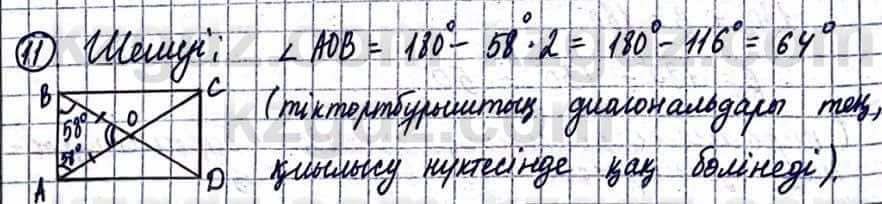 11 Шешуі: ∠AOB = 180° - 58° · 2 = 180° - 116° = 64°
B C
58° O
58°
A D
(тіктөртбұрыштың диагональдары тең,
қиылысу нүктесінде қақ бөлінеді).